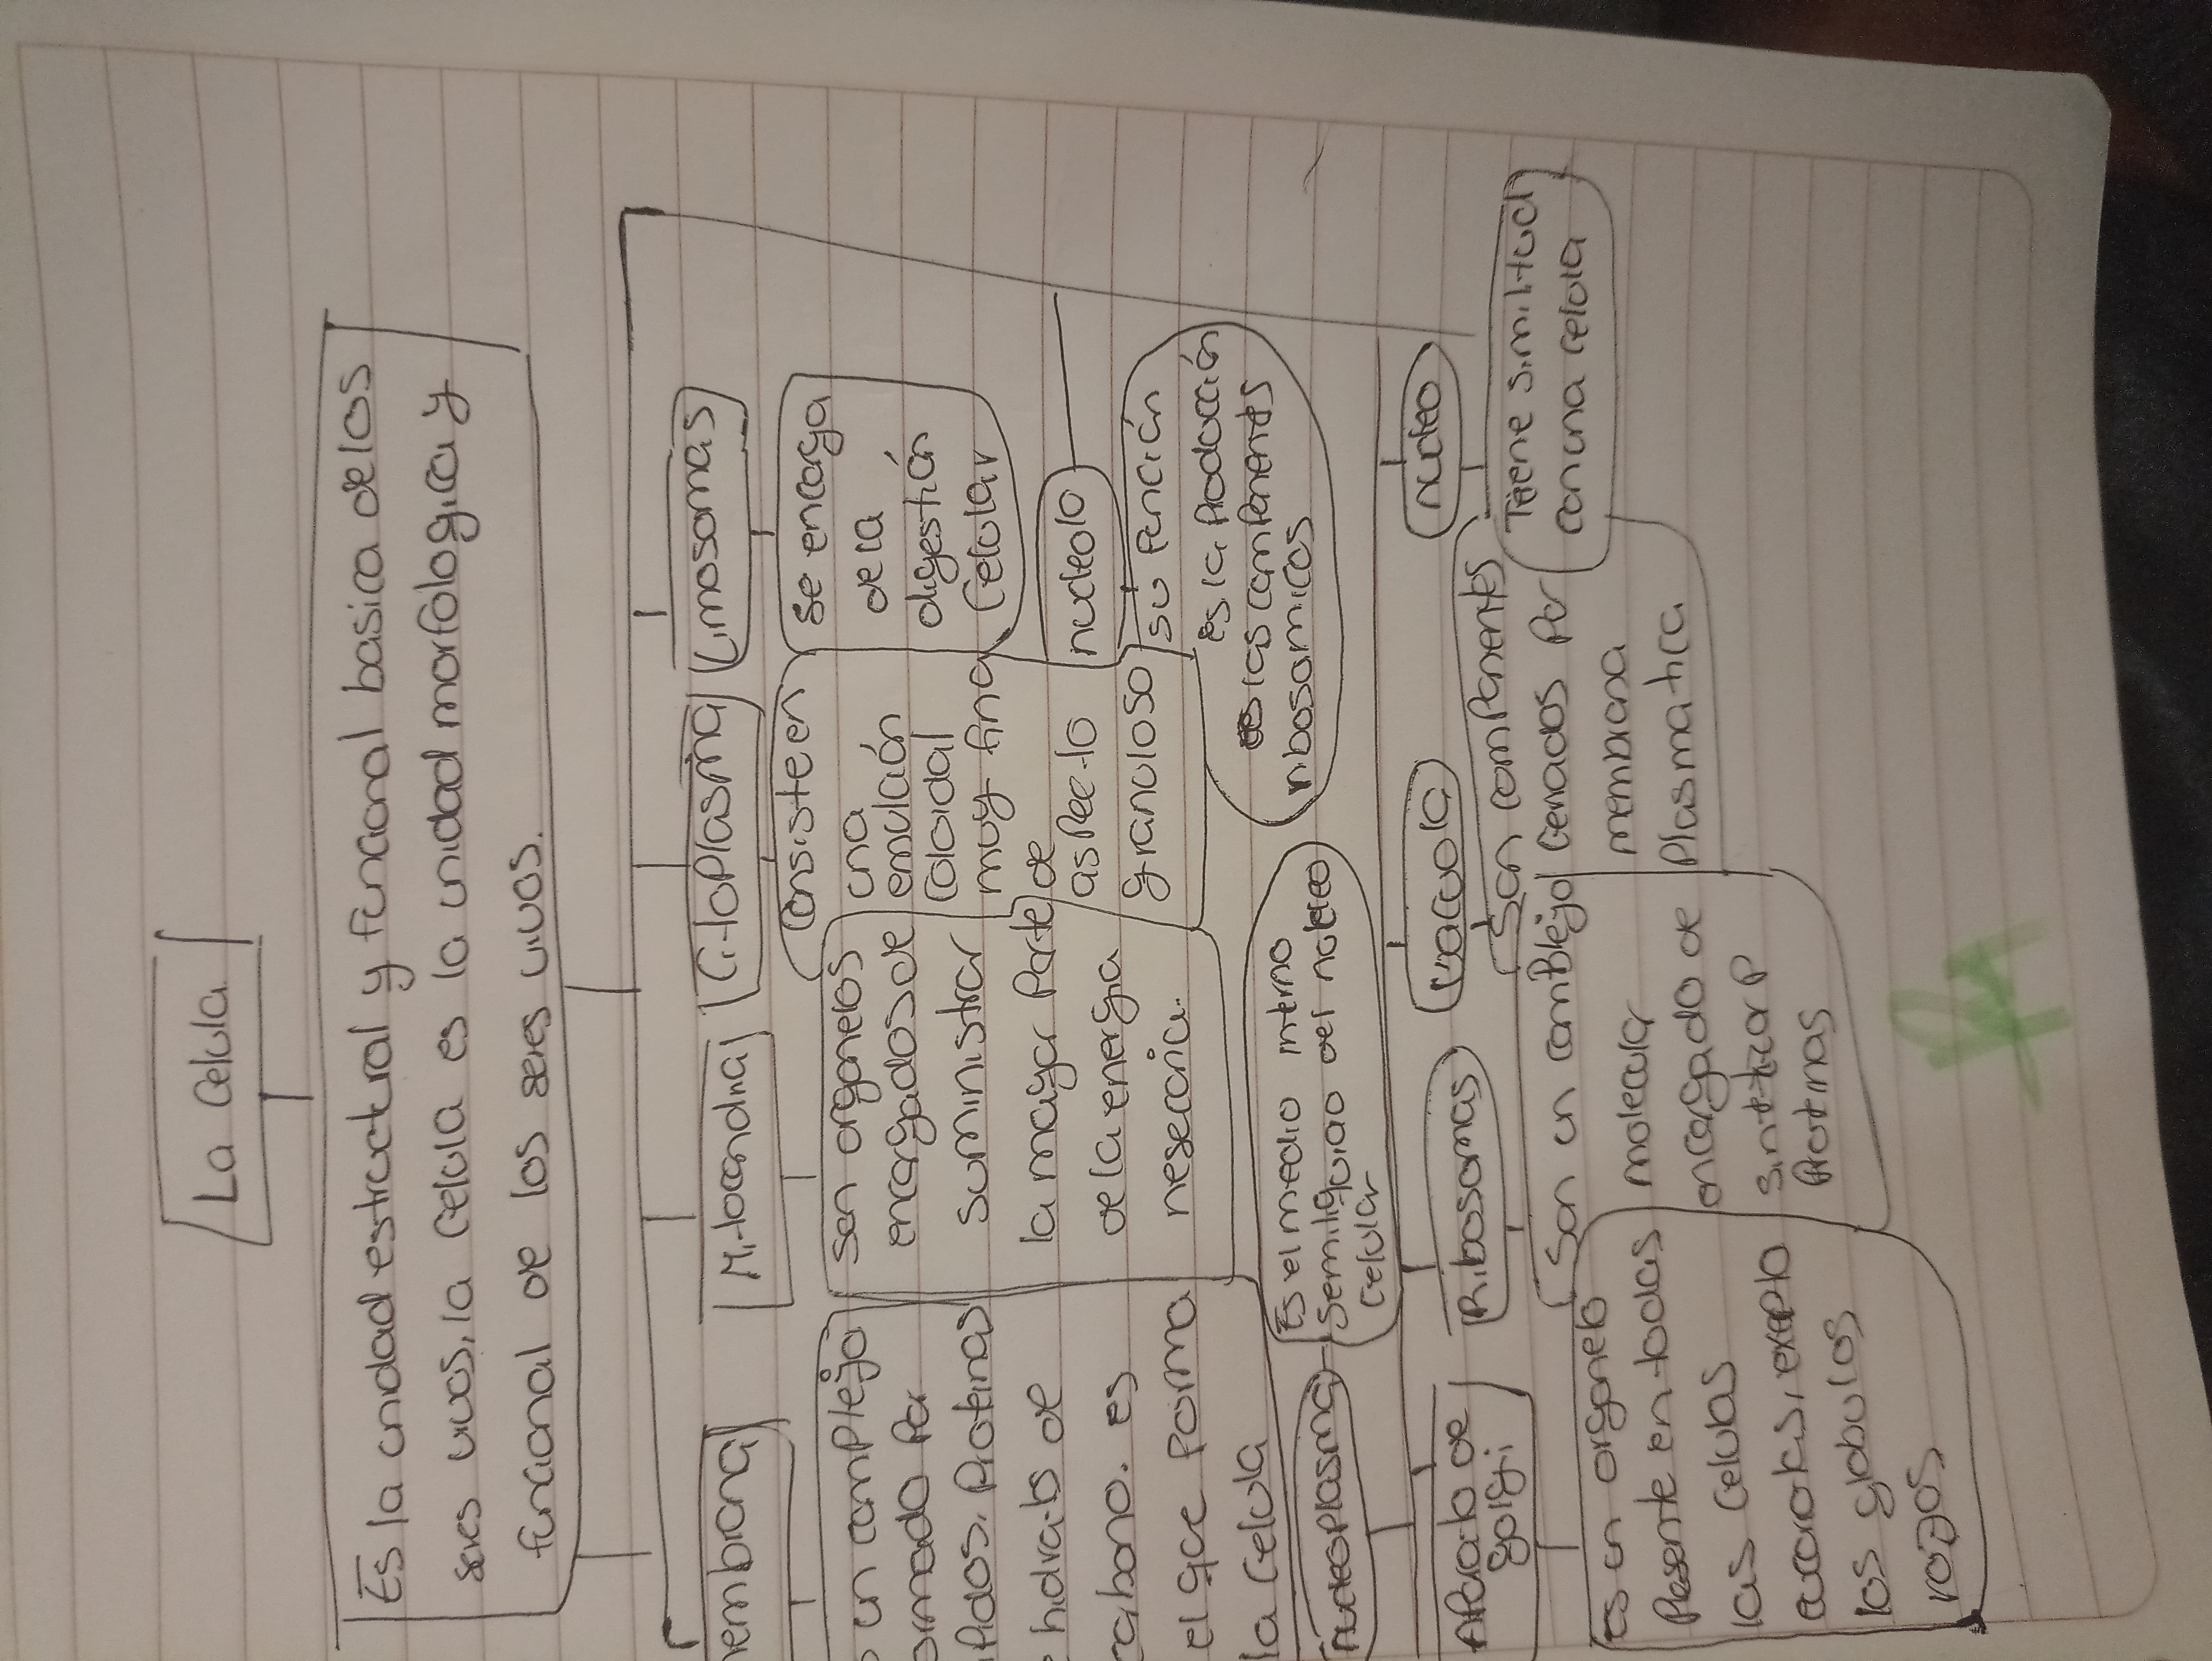 La celula
Es la unidad estructural y funcional basica de los
seres vivos, la celula es la unidad morfologica y
funcional de los seres vivos.
embrana
un complejo
ormado por
pidos, Proteinas
hidrato de
rabono. es
el que forma
la celula
Mitocondria
son organelos
encargados de
suministrar
la mayor Parte
de la energia
nesecaria.
CitoPlasma
Consiste en
una
emulsión
coloidal
muy fina
de
aspecto
granuloso
Limosomas
se encarga
de la
digestión
Celular
nucleolo
su función
es la Producción
las componentes
ribosomicos
nucleoplasma
Es el medio interno
semiliquido del nucleo
celular
Aparato de
golgi
Es un organelo
Presente en todas
las celulas
eucariotas, exepto
los globulos
rojos.
Ribosomas
Son un complejo
molecular
encargado de
sintitizar P
Protinas
vacuola
Son componentes
Cerrados Por
membrana
Plasmatica
nucleo
Tiene similitud
con una celula